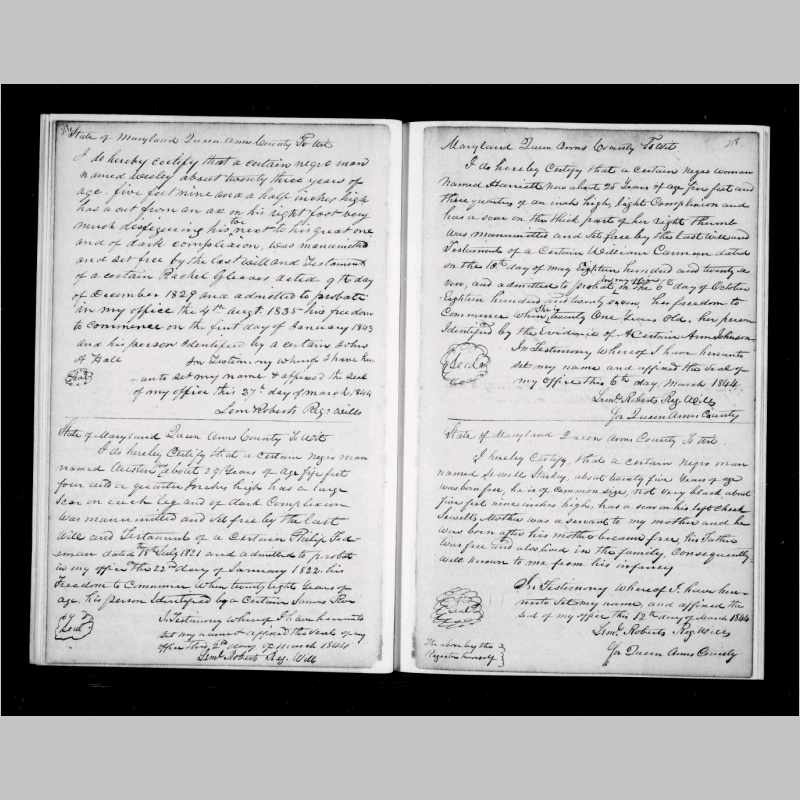 State of Maryland Queen Anns County To Wit
I do hereby certify that a certain negro man
named Wesley about twenty three years of
age. five feet nine and a half inches high
has a cut from an ax on his right foot very
much desfeguring his toe next to his great one
and of dark complexion, was manumitted
and set free by the last will and Testament
of a certain Rachel Gleaves dated 9th day
of December 1829 and admitted to probate
in my office the 4th Augt. 1835 his freedom
to commence on the first day of January 1843
and his person Identified by a certain John
H Hall In Testimony whereof I have here
unto set my name & affixed the seal
of my office this 27th day of March 1844
Seal
Leml Roberts Regr Wills
State of Maryland Queen Anns County To Wit
I do hereby Certify that a certain Negro man
named Austin about 29 Years of Age five feet
four and a quarter Inches high has a large
Scar on each leg and of dark Complexion
Was manumitted and set free by the last
Will and Testament of a Certain Philip Fed-
eman dated July 1821 and admitted to probate
in my office the 22nd day of January 1822. his
Freedom to Commence When twenty eight Years of
age, his person Identified by a Certain James
In Testimony whereof I have hereunto
set my name & affixed the seal of my
office this 2nd day of March 1844
Seal
Leml Roberts Reg. Wills
Maryland Queen Anns County To Wit
I do hereby Certify that a certain Negro Woman
Named Harriett now about 25 Years of age five feet and
three quarters of an inch high, light Complexion and
has a scar on the thick part of her right thumb
Was manumitted and set free by the last Will and
Testament of a Certain William Carman dated
on the 10th day of May Eighteen hundred and twenty a
and admitted to probate in my office on the 6th day of October
Eighteen hundred and twenty seven, her freedom to
Commence when twenty One Years Old. her person
Identified by the Evidence of A Certain Ann Johnson
In Testimony Where of I have hereunto
set my name and affixed the Seal of
my Office this 6th day March 1844
Seal
Leml. Roberts Reg. Wills
for Queen Anns County
State of Maryland Queen Anns County To Wit.
I hereby Certify that a certain Negro man
named Sewell Starkey, about twenty five Years of age
was born free, he is of Common size, not very black about
five feet nine inches high, has a scar on his left Cheek
Sewell's Mother was a servant to my mother and he
was born after his mother became free, his Father
was free and also lived in the family, Consequently
well known to me from his infancy
In Testimony Where of I have here-
unto set my name, and affixed the
seal of my office this 12th day of March 1844
Seal
Leml. Roberts Reg. Wills
for Queen Anns County
The above by the
Register himself